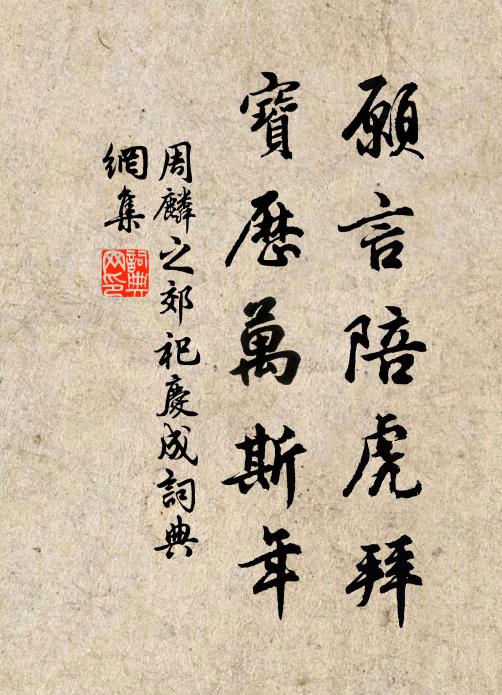 願言陪虎拜
寶歷萬斯年
周麟之郊祀慶成詞典
網集
詞典
网印